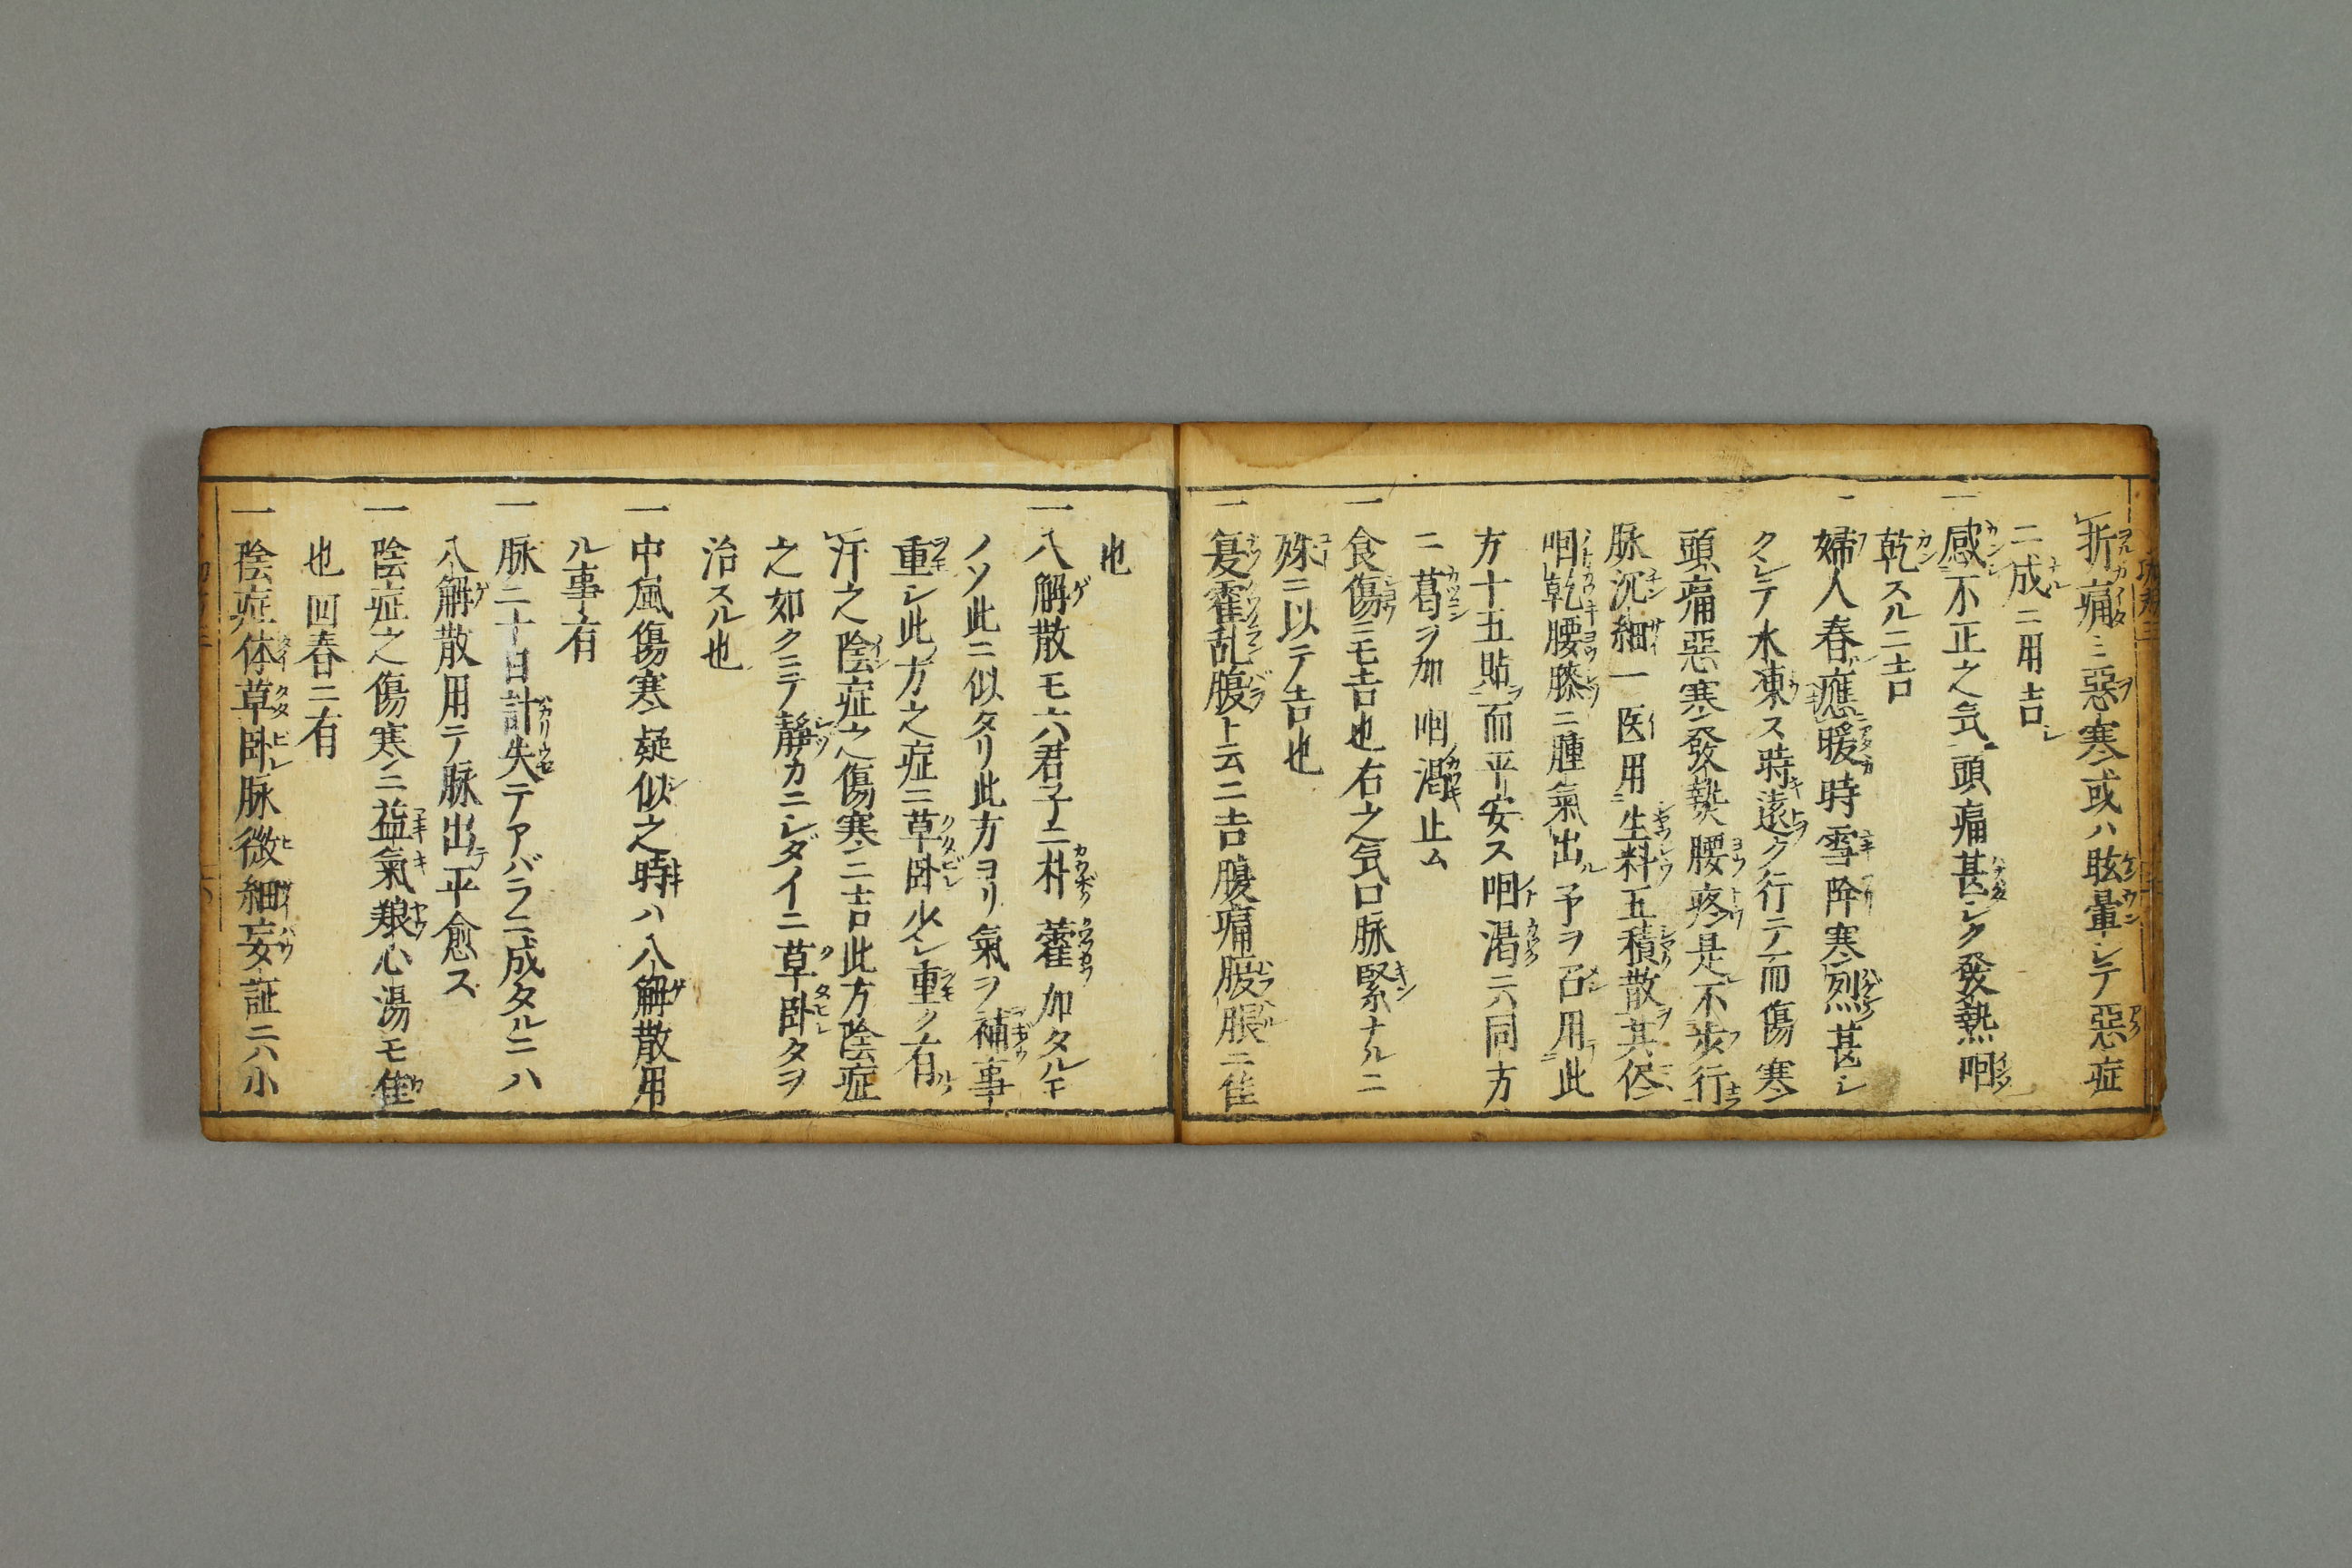 折痛ミ惡寒或ハ眩暈シテ惡症
ニ成ニ用吉シ
一感不正之気頭痛甚シク發熱咽
乾スルニ吉
一婦人春應暖時雪降寒烈甚シ
クシテ水凍ス時遠ク行テ而傷寒
頭痛惡寒發熱腰疼是不歩行
脉沉細一医用生料五積散其侭
咽乾腰膝ニ腫氣出ル予ヲ召用此
方十五貼而平安ス咽渇ニハ同方
ニ葛ヲ加咽渇止ム
一食傷ニモ吉也右之気口脉緊ナルニ
殊ニ以テ吉也
一夏霍乱腹ト云ニ吉腹痛腹脹ニ佳
也
一八解散モ六君子ニ朴藿加タルモ
ノソ此ニ似タリ此方ヨリ氣ヲ補事
重シ此方之症ニ草臥少シ重ク有
汗之陰症之傷寒ニ吉此方陰症
之如クミテ静カニシダイニ草臥タヲ
治スル也
一中風傷寒疑似之時ハ八解散用
ル事有
一脉二十日計失テアバラニ成タルニハ
八解散用テ脉出平愈ス
一陰症之傷寒ニ益氣養心湯モ佳
也回春ニ有
一陰症体草臥脉微細妄証ニハ小